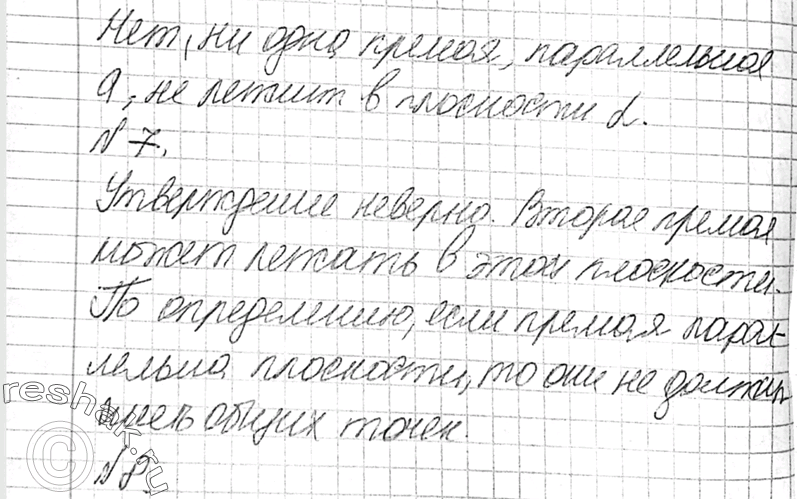 Нет, ни одна прямая, параллельная
a, не лежит в плоскости α.
№7.
Утверждение неверно. Вторая прямая
может лежать в этой плоскости.
По определению, если прямая парал-
лельна плоскости, то они не должны
иметь общих точек.
№8.
reshak.ru